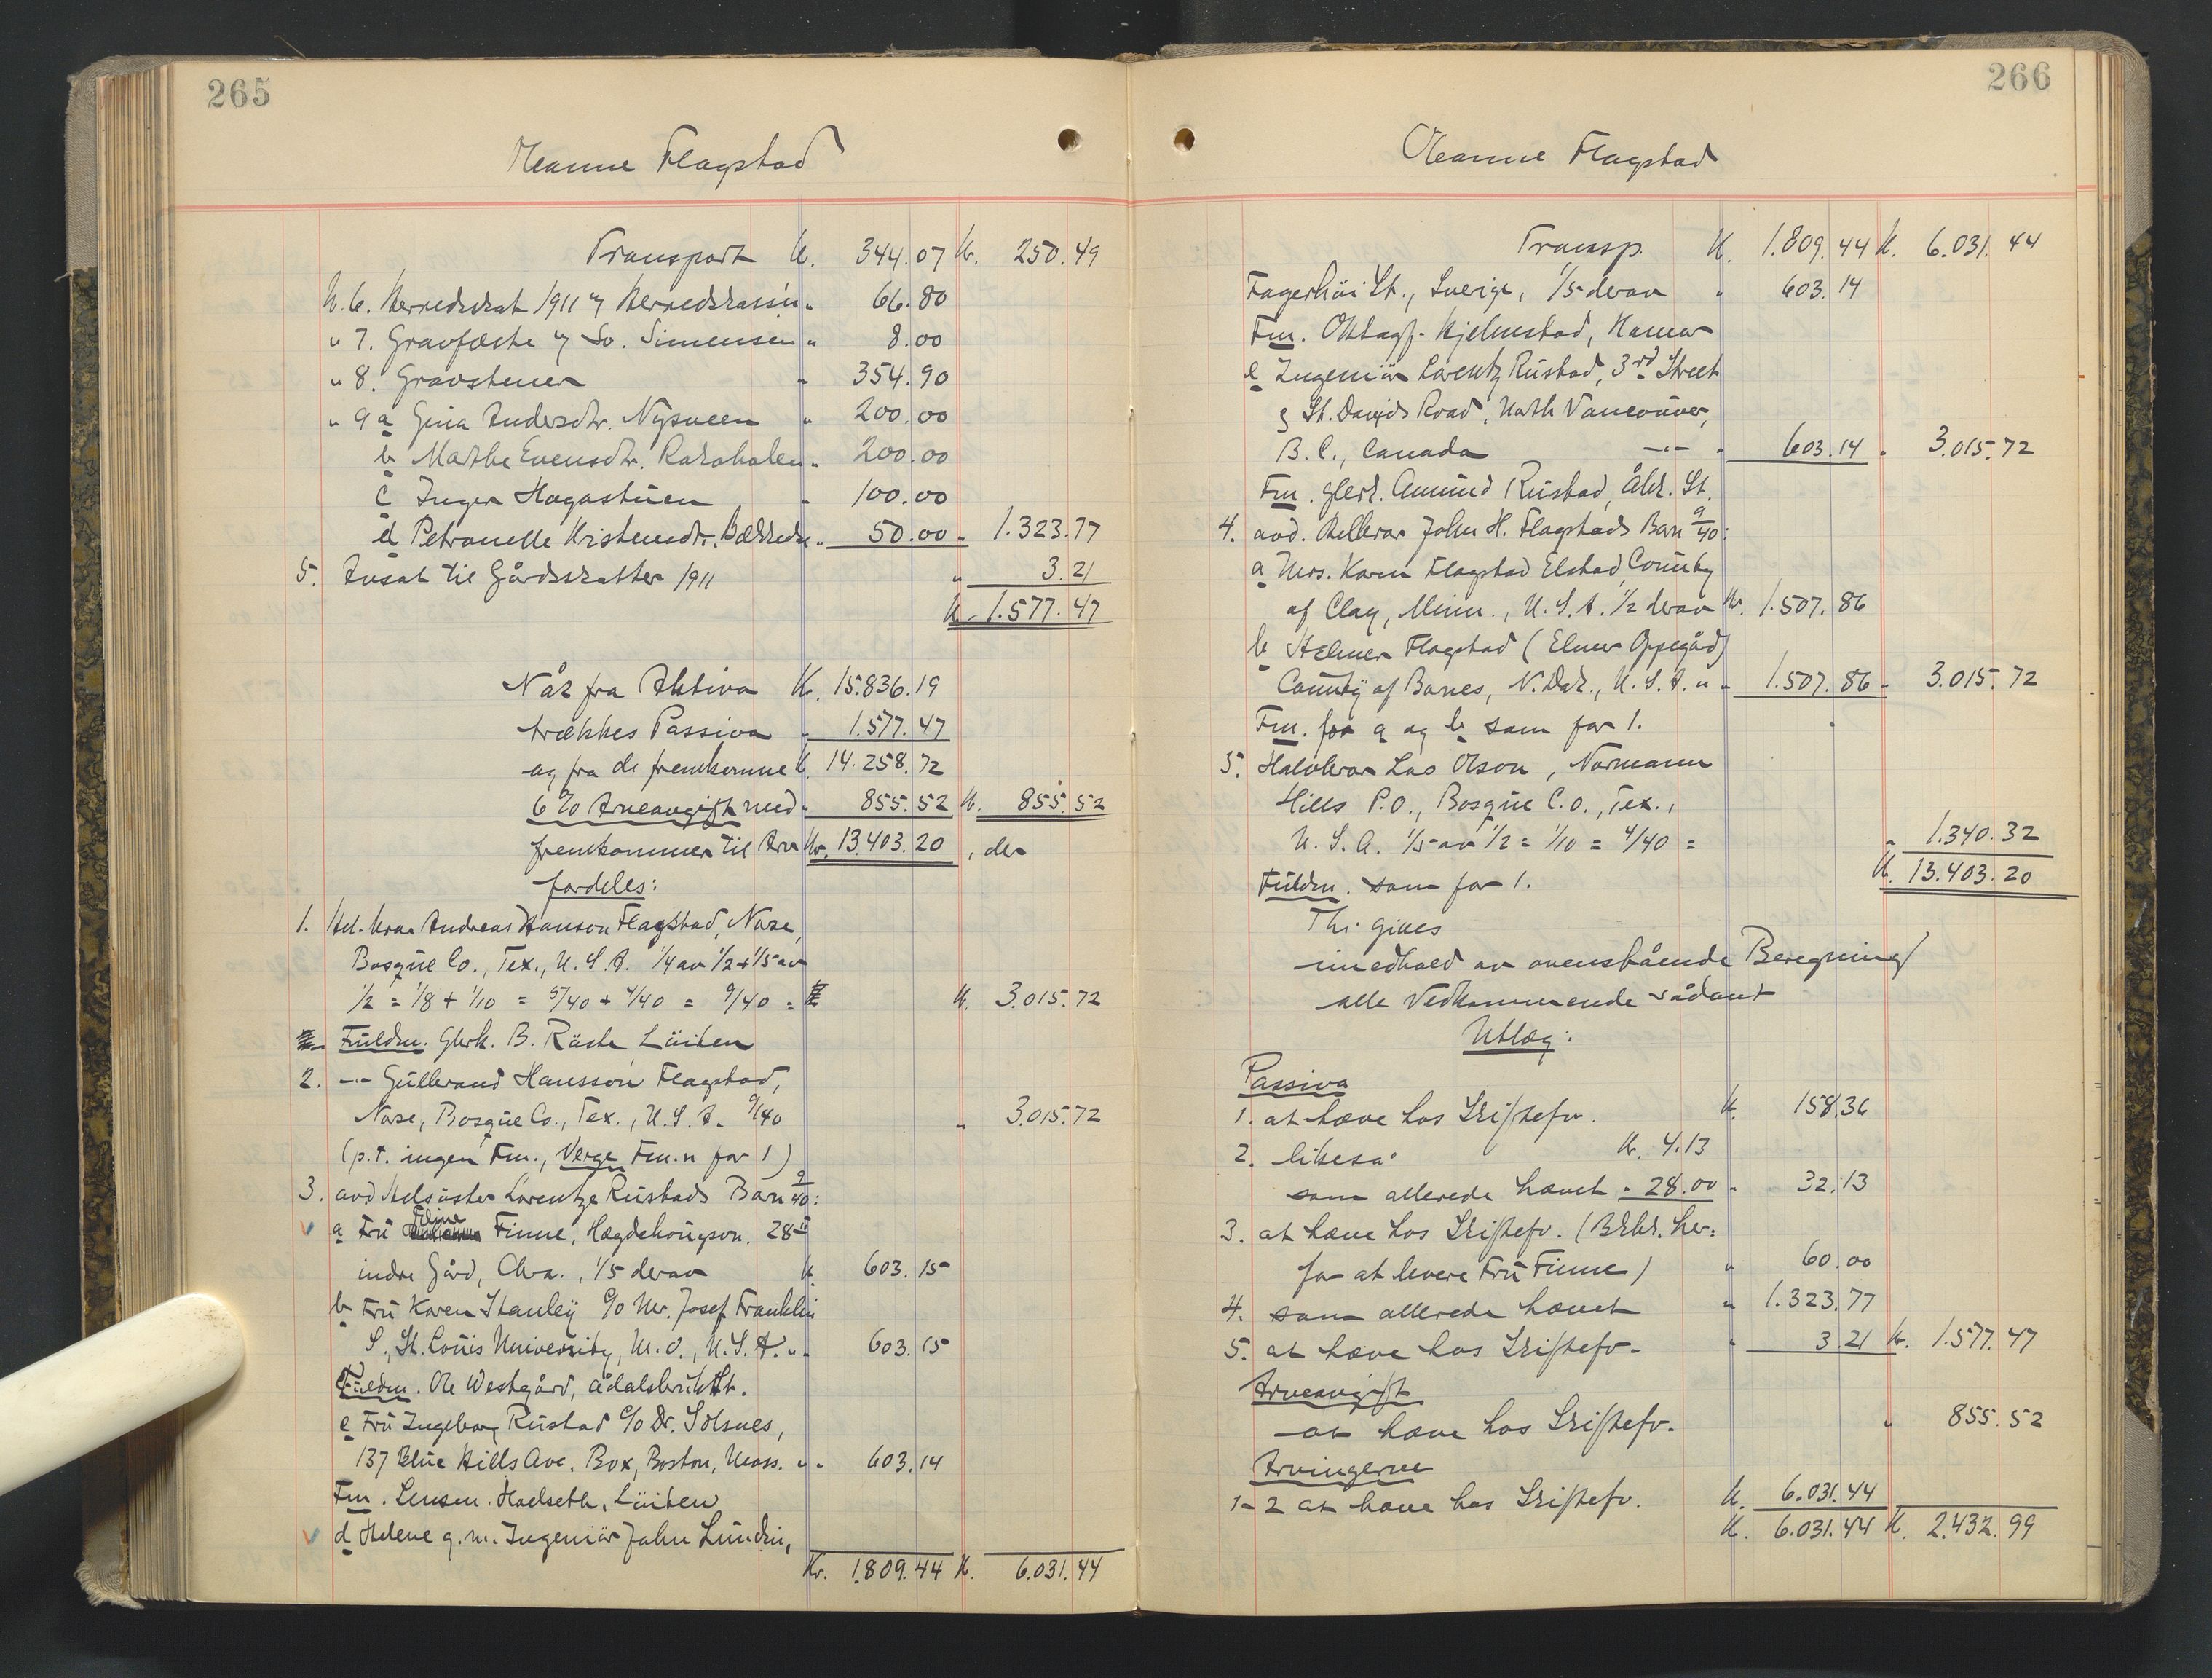 265
Oleanne Flagstad
Transport Kr. 344.07 Kr. 250.49
N. 6. Herredsskat 1911 Herredskassen " 66.80
" 7. Gravfæste Sv. Simensen " 8.00
" 8. Gravstenen " 354.90
" 9 a Gina Andersdtr. Nysveen " 200.00
b Marthe Evensdtr. " 200.00
c Inger Hagastuen " 100.00
d Petronelle Kristensdtr. " 50.00 " 1.323.77
5. Avsat til Gårdsskatter 1911 " 3.21
Kr. 1.577.47
Når fra Aktiva Kr. 15.836.19
trækkes Passiva " 1.577.47
og fra de fremkomne Kr. 14.258.72
6 % Arveavgift med " 855.52 Kr. 855.52
fremkommer til Arv Kr. 13.403.20, der
fordeles:
1. Andreas Hanson Flagstad, Norse,
Bosque Co., Tex., U.S.A. 1/4 av 1/2 + 1/5 av
1/2 = 1/8 + 1/10 = 5/40 + 4/40 = 9/40 = Kr. 3.015.72
Fuldm. B. Løiten
2. -"- Gulbrand Hansson Flagstad,
Norse, Bosque Co., Tex., U.S.A. 9/40 " 3.015.72
(p.t. ingen Fm., Verge Fm.n for 1)
3. avd. Helsøster Lorentze Rustads Barn 9/40:
a Fru Eline Finne, Hægdehougsvn. 28 II
indre Gård, Chra., 1/5 derav Kr. 603.15
b Fru Karen Stanley c/o Mr. Josef Franklin
S., St. Louis University, M.O., U.S.A. " " 603.15
Fuldm. Ole Westgård, Ådalsbruk St.
c Fru Ingeborg Rustad c/o Dr. Solsnes,
137 Blue Hills Ave. Box, Boston, Mass. " " 603.14
Fm. Lensm. Hoelseth, Løiten
d Helene g.m. Ingeniør John Lundin,
Kr. 1.809.44 Kr. 6.031.44
266
Oleanne Flagstad
Transp. Kr. 1.809.44 Kr. 6.031.44
Fagerhøi St., Sverige, 1/5 derav " 603.14
Fm. Kjelmstad, Hamar
e Ingeniør Lorentz Rustad, 3rd Street
& St. Davids Road, North Vancouver,
B.C., Canada -"- " 603.14 " 3.015.72
Fm. Amund Rustad, St.
4. avd. Halvbror John H. Flagstads Barn 9/40:
a Mrs. Karen Flagstad Elstad, County
of Clay, Minn., U.S.A. 1/2 derav Kr. 1.507.86
b Helmer Flagstad (Elmer Oppegård)
County of Barnes, N. Dak., U.S.A. " " 1.507.86 " 3.015.72
Fm. for a og b som for 1.
5. Halvbror Lars Olson, Normann
Hills P.O., Bosque C.O., Tex.,
U.S.A. 1/5 av 1/2 = 1/10 = 4/40 = " 1.340.32
Kr. 13.403.20
Fuldm. som for 1.
Thi gives
imedhold av ovenstående Beregning
alle Vedkommende sådant
Utlæg:
Passiva
1. at hæve hos Skiftefv. Kr. 158.36
2. likeså Kr. 4.13
som allerede hævet " 28.00 " 32.13
3. at hæve hos Skiftefv. (
for at levere Fru Finne) " 60.00
4. som allerede hævet " 1.323.77
5. at hæve hos Skiftefv. " 3.21 Kr. 1.577.47
Arveavgift
at hæve hos Skiftefv. " 855.52
Arvingerne
1-2 at hæve hos Skiftefv. Kr. 6.031.44
Kr. 6.031.44 Kr. 2.432.99